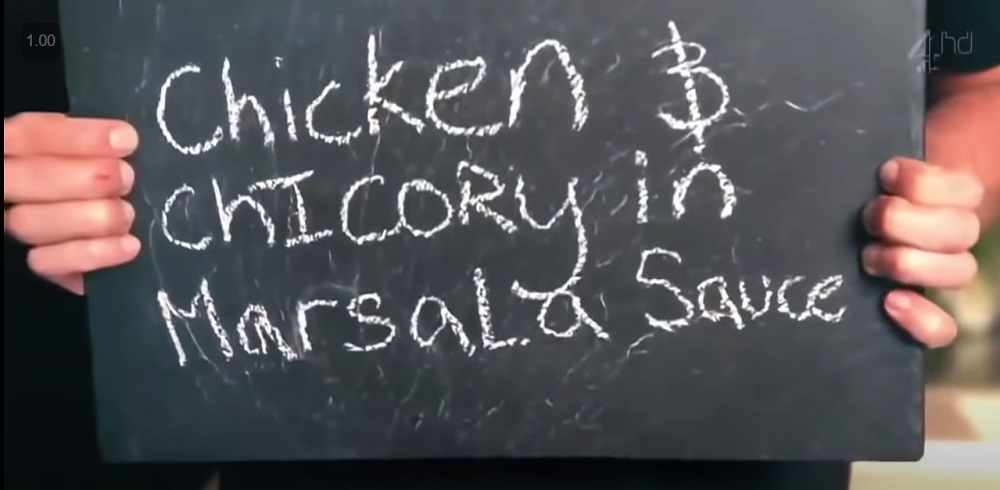 1.00
4hd
Chicken &
ChICORy in
MarsaLa Sauce